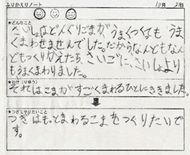 ふりかえりノート 10月 2日
さいしょどんぐりごまが うまくつくっても うまく
まわせませんでした。だからなんどもなん
どもつくりかえたら、さいごに、さいしょより
もうまくまわりました。
それはこまがすごくまわるひとにききました。
つぎはもっとまわるこまをつくりたいで
す。